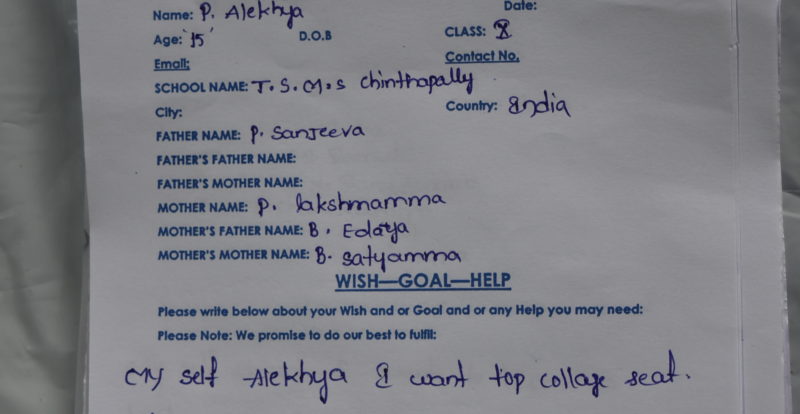 Name: P. Alekhya Date:
Age: '15' D.O.B CLASS: X
Email: Contact No.
SCHOOL NAME: T.S.M.S Chinthapally
City: Country: India
FATHER NAME: P. Sanjeeva
FATHER'S FATHER NAME:
FATHER'S MOTHER NAME:
MOTHER NAME: P. lakshmamma
MOTHER'S FATHER NAME: B. Edaiya
MOTHER'S MOTHER NAME: B. Satyamma
WISH—GOAL—HELP
Please write below about your Wish and or Goal and or any Help you may need:
Please Note: We promise to do our best to fulfil:
My self Alekhya I want top collage seat.